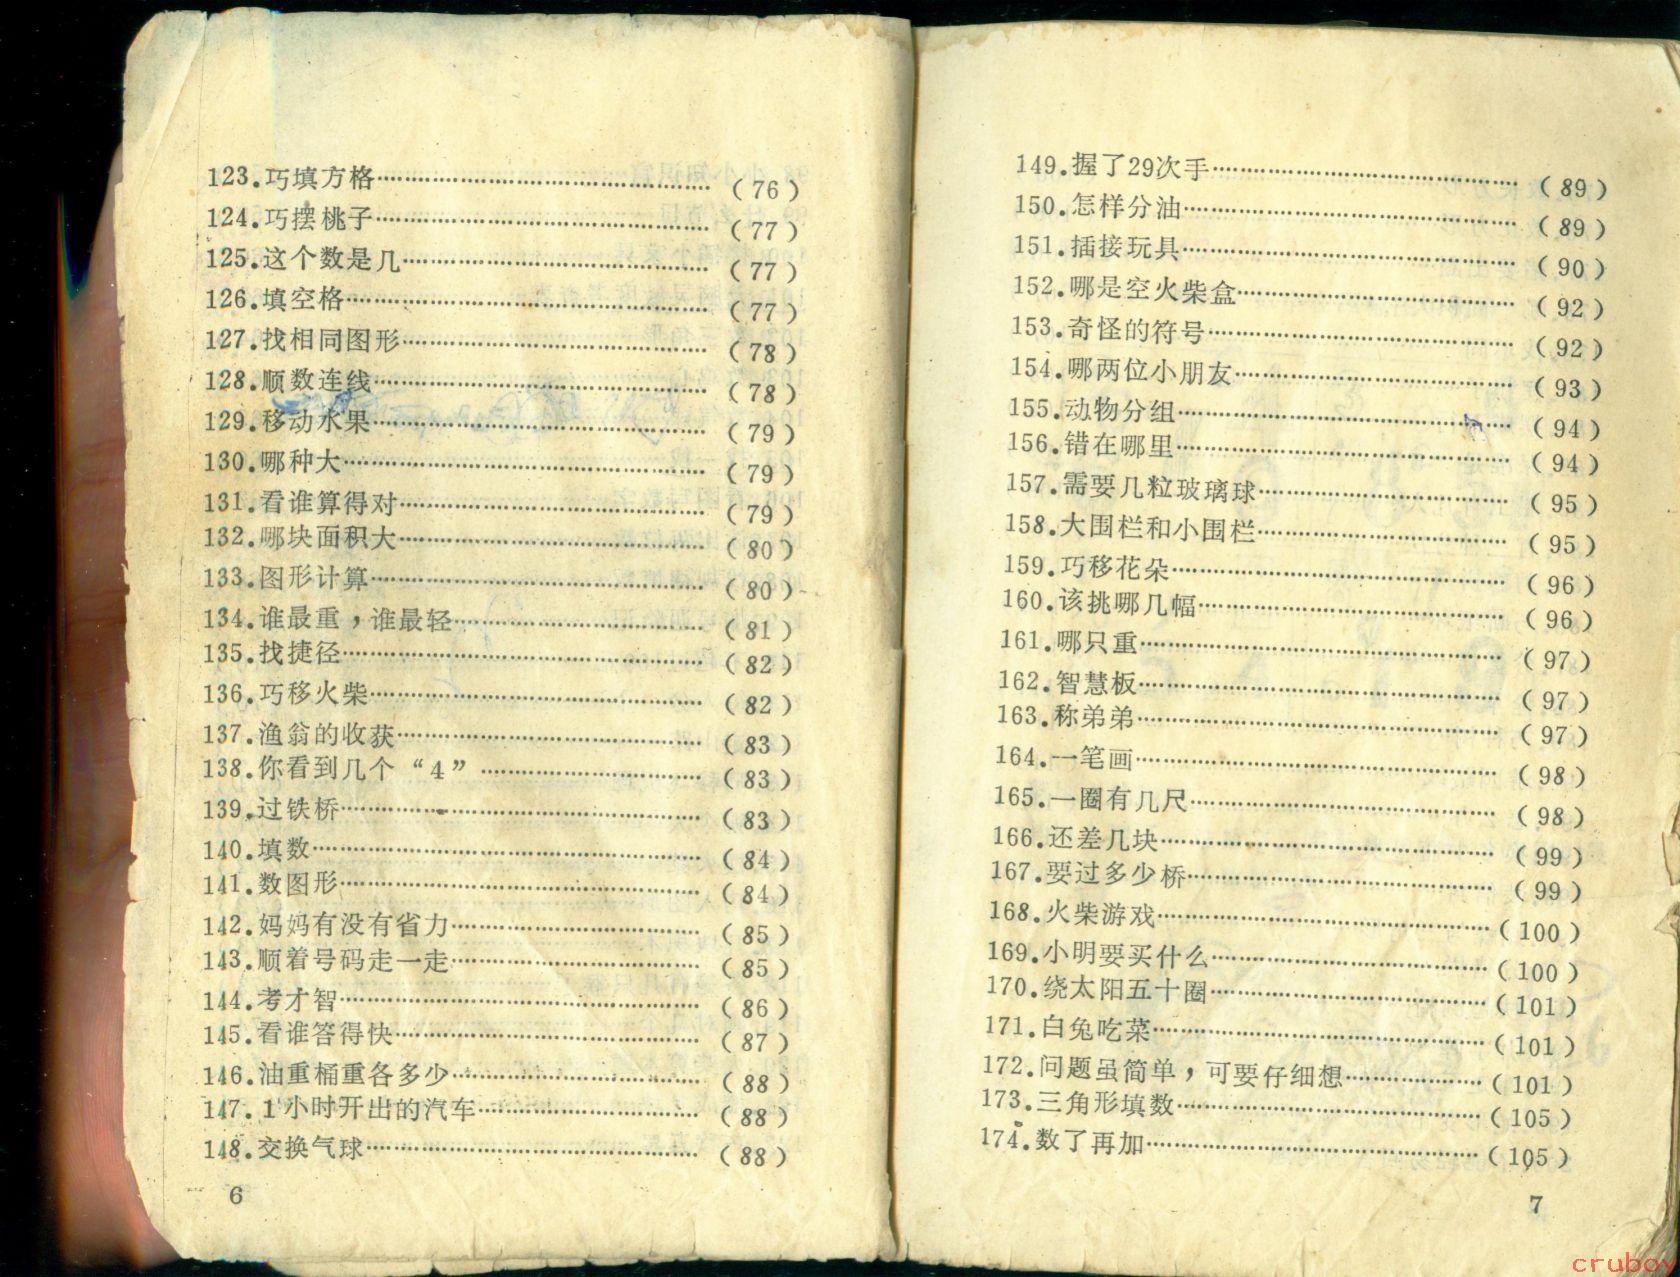 123.巧填方格……………………………（76）
124.巧摆桃子……………………………（77）
125.这个数是几…………………………（77）
126.填空格………………………………（77）
127.找相同图形…………………………（78）
128.顺数连线……………………………（78）
129.移动水果……………………………（79）
130.哪种大………………………………（79）
131.看谁算得对…………………………（79）
132.哪块面积大…………………………（80）
133.图形计算……………………………（80）
134.谁最重，谁最轻……………………（81）
135.找捷径………………………………（82）
136.巧移火柴……………………………（82）
137.渔翁的收获…………………………（83）
138.你看到几个“4”……………………（83）
139.过铁桥………………………………（83）
140.填数…………………………………（84）
141.数图形………………………………（84）
142.妈妈有没有省力……………………（85）
143.顺着号码走一走……………………（85）
144.考才智………………………………（86）
145.看谁答得快…………………………（87）
146.油重桶重各多少……………………（88）
147.1小时开出的汽车……………………（88）
148.交换气球……………………………（88）
6
149.握了29次手…………………………（89）
150.怎样分油……………………………（89）
151.插接玩具……………………………（90）
152.哪是空火柴盒………………………（92）
153.奇怪的符号…………………………（92）
154.哪两位小朋友………………………（93）
155.动物分组……………………………（94）
156.错在哪里……………………………（94）
157.需要几粒玻璃球……………………（95）
158.大围栏和小围栏……………………（95）
159.巧移花朵……………………………（96）
160.该挑哪几幅…………………………（96）
161.哪只重………………………………（97）
162.智慧板………………………………（97）
163.称弟弟………………………………（97）
164.一笔画………………………………（98）
165.一圈有几尺…………………………（98）
166.还差几块……………………………（99）
167.要过多少桥…………………………（99）
168.火柴游戏……………………………（100）
169.小明要买什么………………………（100）
170.绕太阳五十圈………………………（101）
171.白兔吃菜……………………………（101）
172.问题虽简单，可要仔细想…………（101）
173.三角形填数…………………………（105）
174.数了再加……………………………（105）
7
cruboy